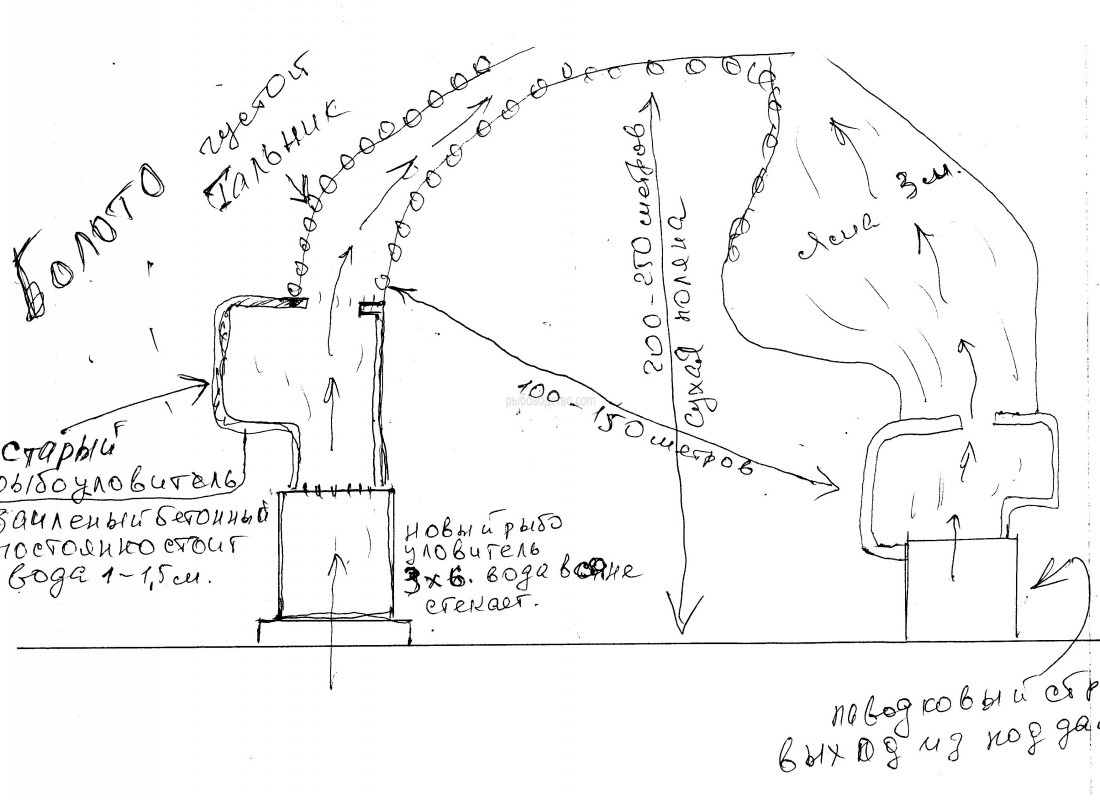 БОЛОТО
густой
Тальник
200-250 метров
сухая поляна
Яма 3м.
100-150 метров
рыбоводство.com
старый
рыбоуловитель
заиленый бетонный
постоянно стоит
вода 1-1,5м.
новый рыбо
уловитель
3х6. вода
стекает.
паводковый
выход из под